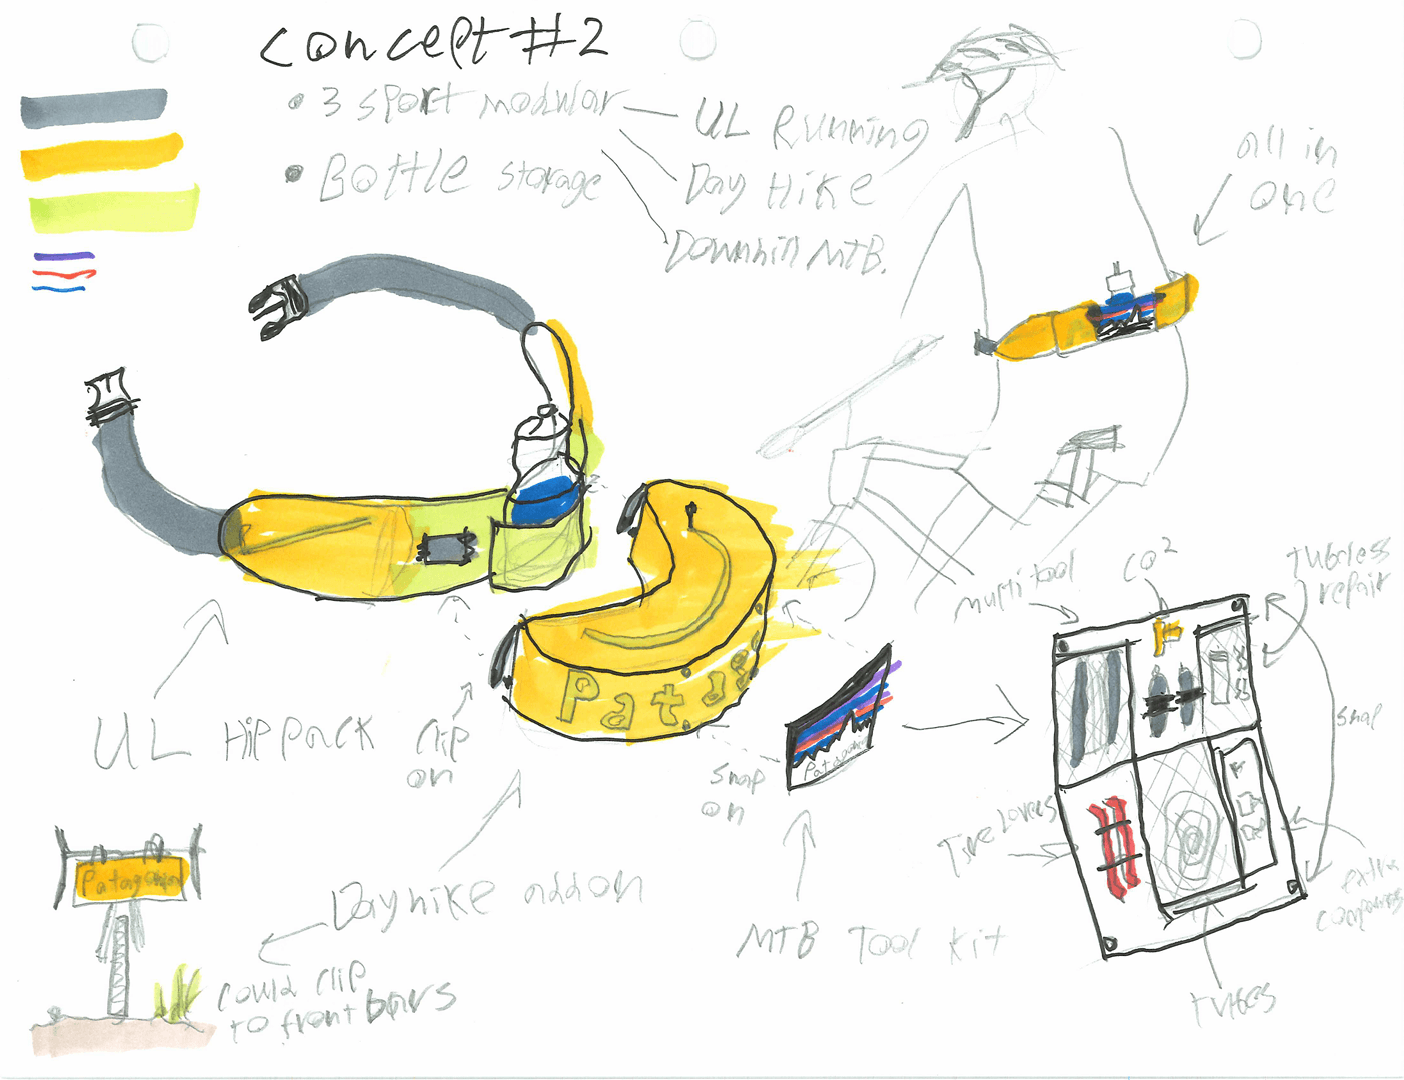 concept #2
• 3 sport modular
UL Running
• Bottle storage
Day Hike
Downhill MTB.
all in
one
multi tool
CO2
tubeless
repair
snap
UL Hip pack
clip
on
Patag
Patagonia
snap
on
Tire Levers
extra
Patagonia
Dayhike add on
MTB Tool kit
could clip
to front bars
tubes